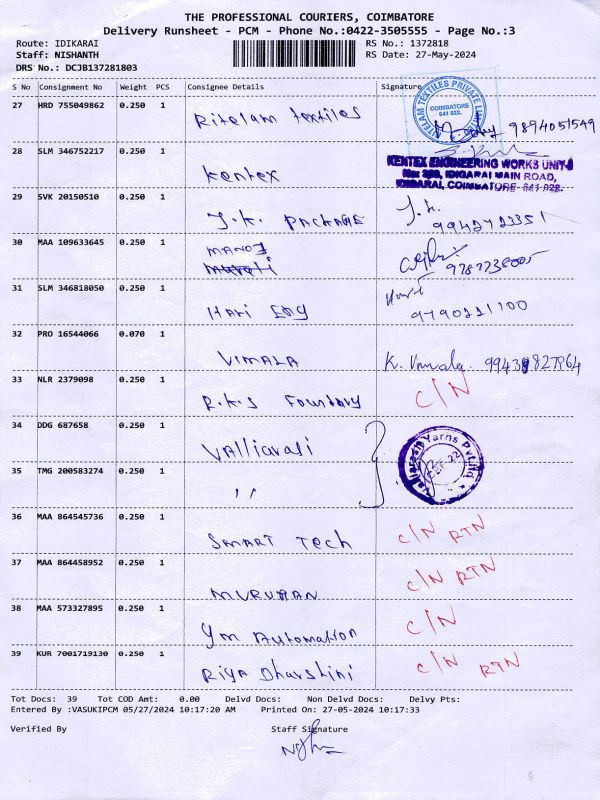 THE PROFESSIONAL COURIERS, COIMBATORE
Delivery Runsheet - PCM - Phone No.:0422-3505555 - Page No.:3
Route: IDIKARAI RS No.: 1372818
Staff: NISHANTH RS Date: 27-May-2024
DRS No.: DCJB137281803
S No Consignment No Weight PCS Consignee Details Signature
27 HRD 755049862 0.250 1 Ritelam textiles 9894051549
COIMBATORE
641 022.
28 SLM 346752217 0.250 1 Kentex
KENTEX ENGINEERING WORKS UNIT-I
IDIGARAI MAIN ROAD,
IDIGARAI, COIMBATORE- 641 022.
29 SVK 20150510 0.250 1 J.K. PACKAGE J.K.
9942723351
30 MAA 109633645 0.250 1 MANOJ
31 SLM 346818050 0.250 1 Hari Eng
9790221100
32 PRO 16544066 0.070 1 VIMALA K. Vimala.
33 NLR 2379098 0.250 1 R.K.S Foundry C/N
34 DDG 687658 0.250 1 Valliarasi
Valliarasi Yarns Pvt Ltd
35 TMG 200583274 0.250 1 ,,
36 MAA 864545736 0.250 1 SMART Tech C/N RTN
37 MAA 864458952 0.250 1 MURUHAN C/N RTN
38 MAA 573327895 0.250 1 Ym Automation C/N
39 KUR 7001719130 0.250 1 Riya Dharshini C/N RTN
Tot Docs: 39 Tot COD Amt: 0.00 Delvd Docs: Non Delvd Docs: Delvy Pts:
Entered By :VASUKIPCM 05/27/2024 10:17:20 AM Printed On: 27-05-2024 10:17:33
Verified By Staff Signature